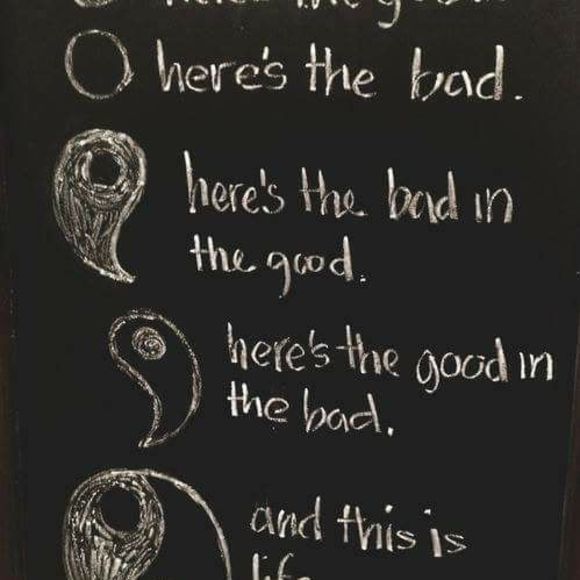 here's the good.
here's the bad.
here's the bad in
the good.
here's the good in
the bad.
and this is
life